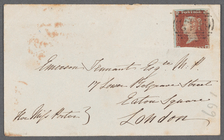 Emerson Tennent Esqre M.P.
17 Lower Belgrave Street
Eaton Square
London
Miss